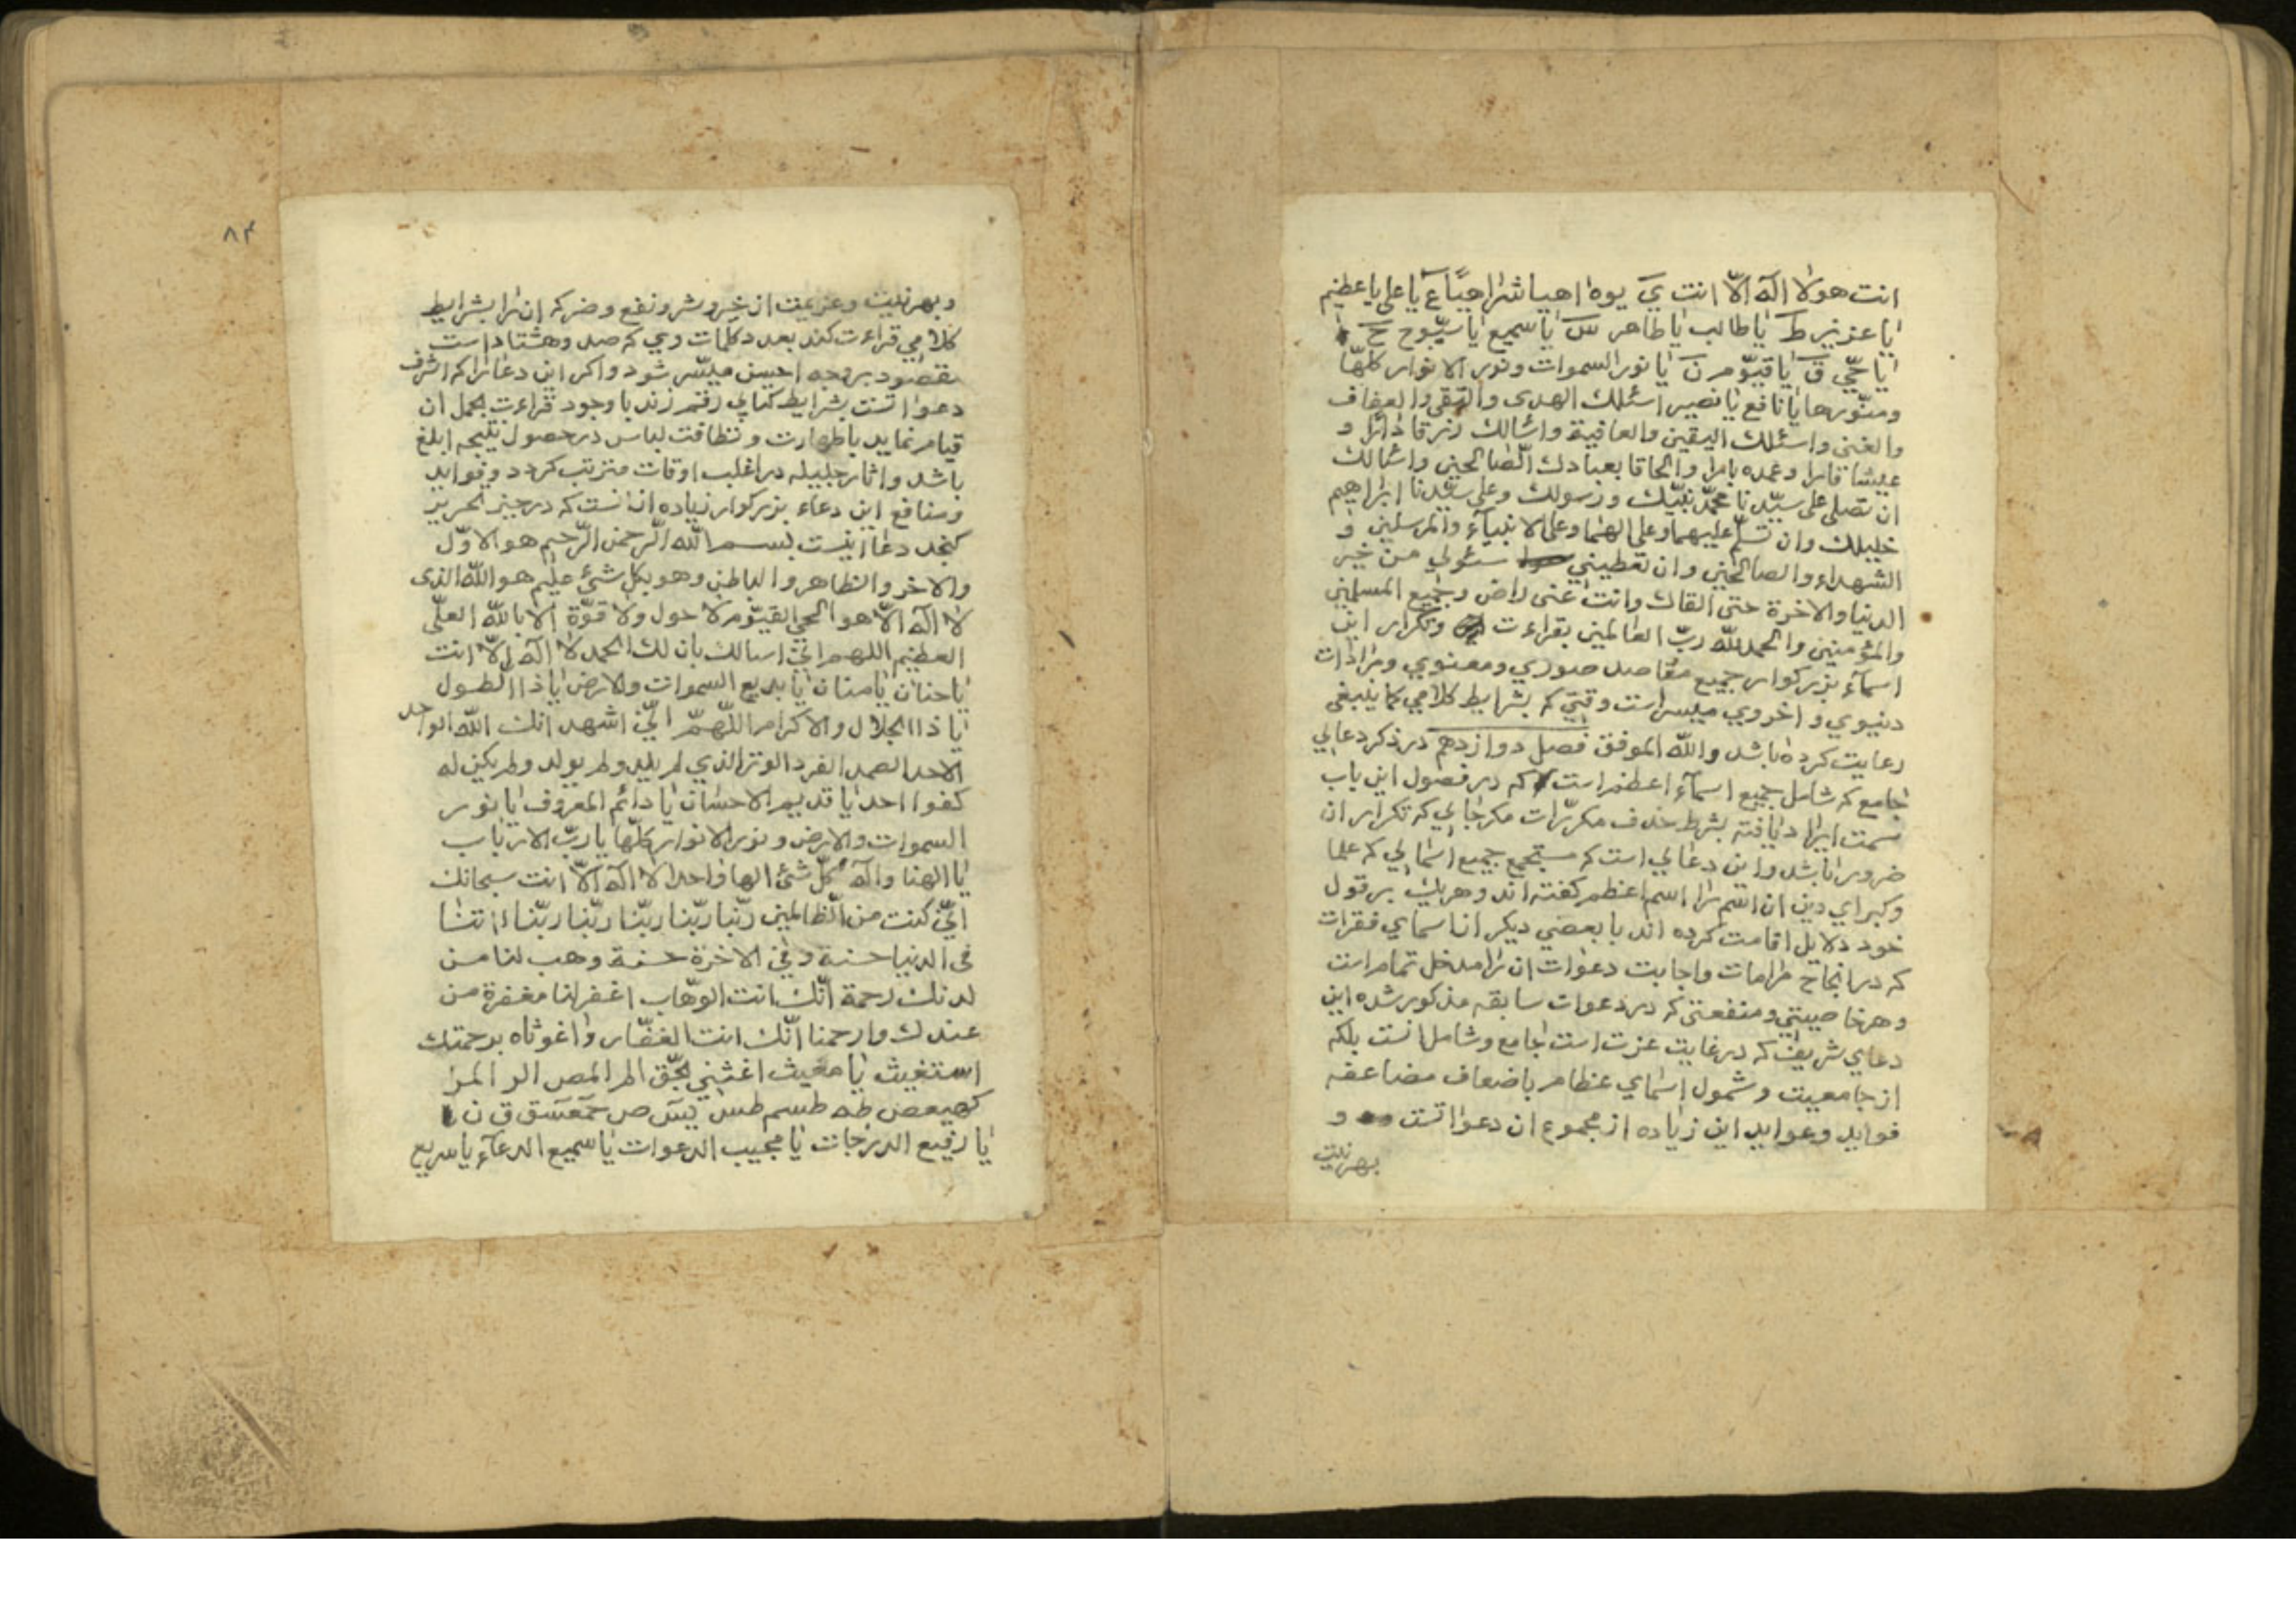 انت هو لا اله الّا انت يَ يوه اهيا شراهيّا عَ يا علي يا عظيم
يا عزيز طَ يا طالب يا طاهر سَ يا سميع يا سبّوح حَ
يا حيّ قَ يا قيّوم نَ يا نور السموات ونور الانوار كلهّا
ومنّورها يا نافع يا نصير اسئلك الهدى والتقى والعفاف
والغنى واسئلك اليقين والعافية واسالك رزقا دارا و
عيشا قارا وعمده بارا والحاقا بعبادك الصّالحين واسالك
ان تصلى على سيّدنا محمّد نبيّك ورسولك وعلى سيّدنا ابراهيم
خليلك وان تسلّم عليهما وعلى الهما وعلى الانبيآء والمرسلين و
الشهداء والصالحين وان تعطيني سئولي من خير
الدنيا والاخرة حتى القاك وانت عنى راض وجميع المسلمين
والمؤمنين والحمد لله ربّ العالمين بقراءت وتكرار اين
اسمآء بزركوار جميع مقاصد صوري ومعنوي ومرادات
دنيوي و اخروي ميسر است وقتي كه بشرايط كلامي كما ينبغى
رعايت كرده باشد والله الموفق فصل دوازدهم در ذكر دعايي
جامع كه شامل جميع اسمآء اعظم است كه در فصول اين باب
سمت ايراد يافته بشرط حذف مكرّرات مكر جايي كه تكرار ان
ضرور باشد واين دعايي است كه مستجمع جميع اسمايي كه علما
وكبراي دين ان اسم را اسم اعظم كفته اند وهر يك بر قول
خود دلايل اقامت كرده اند با بعضي ديكر از اسماي فقرات
كه در انجاح مرامات واجابت دعوات ان را مدخل تمام است
وهر خاصيتي ومنفعتى كه در دعوات سابقه مذكور شده اين
دعاي شريف كه در غايت عزت است جامع وشامل انست بلكه
از جامعيت وشمول اسماي عظام باضعاف مضاعفه
فوايد وعوايد اين زياده از مجموع ان دعواتست و
بهر نيت
۸۴
و بهر نيت وعزيمت از خير وشر ونفع وضر كه ان را بشرايط
كلامي قراءت كند بعدد كلمات وي كه صد وهشتاد است
مقصود بر وجه احسن ميسّر شود واكر اين دعا را كه اشرف
دعواتست بشرايط كتابي رقم زند با وجود قراءت بحمل ان
قيام نمايد با طهارت ونظافت لباس در حصول نتيجه ابلغ
باشد واثار جليله در اغلب اوقات مترتب كردد وفوايد
ومنافع اين دعاء بزركوار زياده از انست كه در حيز تحرير
كنجد دعا اينست بسم الله الرّحمن الرّحيم هو الاوّل
والاخر والظاهر والباطن وهو بكل شئ عليم هو الله الذى
لا اله الّا هو الحي القيّوم لا حول ولا قوّة الا بالله العلّى
العظيم اللهم انّي اسالك بان لك الحمد لا اله الّا انت
يا حنان يا منان يا بديع السموات والارض يا ذا الطول
يا ذا الجلال والاكرام اللّهمّ انّي اشهد انك انت الله الواحد
الاحد الصمد الفرد الوتر الذي لم يلد ولم يولد ولم يكن له
كفوا احد يا قديم الاحسان يا دائم المعروف يا نور
السموات والارض ونور الانوار كلّها يا ربّ الارباب
يا الهنا واله كلّ شئ الها واحدا لا اله الّا انت سبحانك
انّي كنت من الظالمين ربّنا ربّنا ربّنا ربّنا ربّنا اتنا
فى الدنيا حسنة وفي الاخرة حسنة وهب لنا من
لدنك رحمة انّك انت الوهّاب اغفر لنا مغفرة من
عندك وارحمنا انّك انت الغفّار واغوثاه برحمتك
استغيث يا مغيث اغثني بحّق الم المص الر المر
كهيعص طه طسم طس يس ص حمعسق ق ن
يا رفيع الدرجات يا مجيب الدعوات يا سميع الدعآء يا سريع